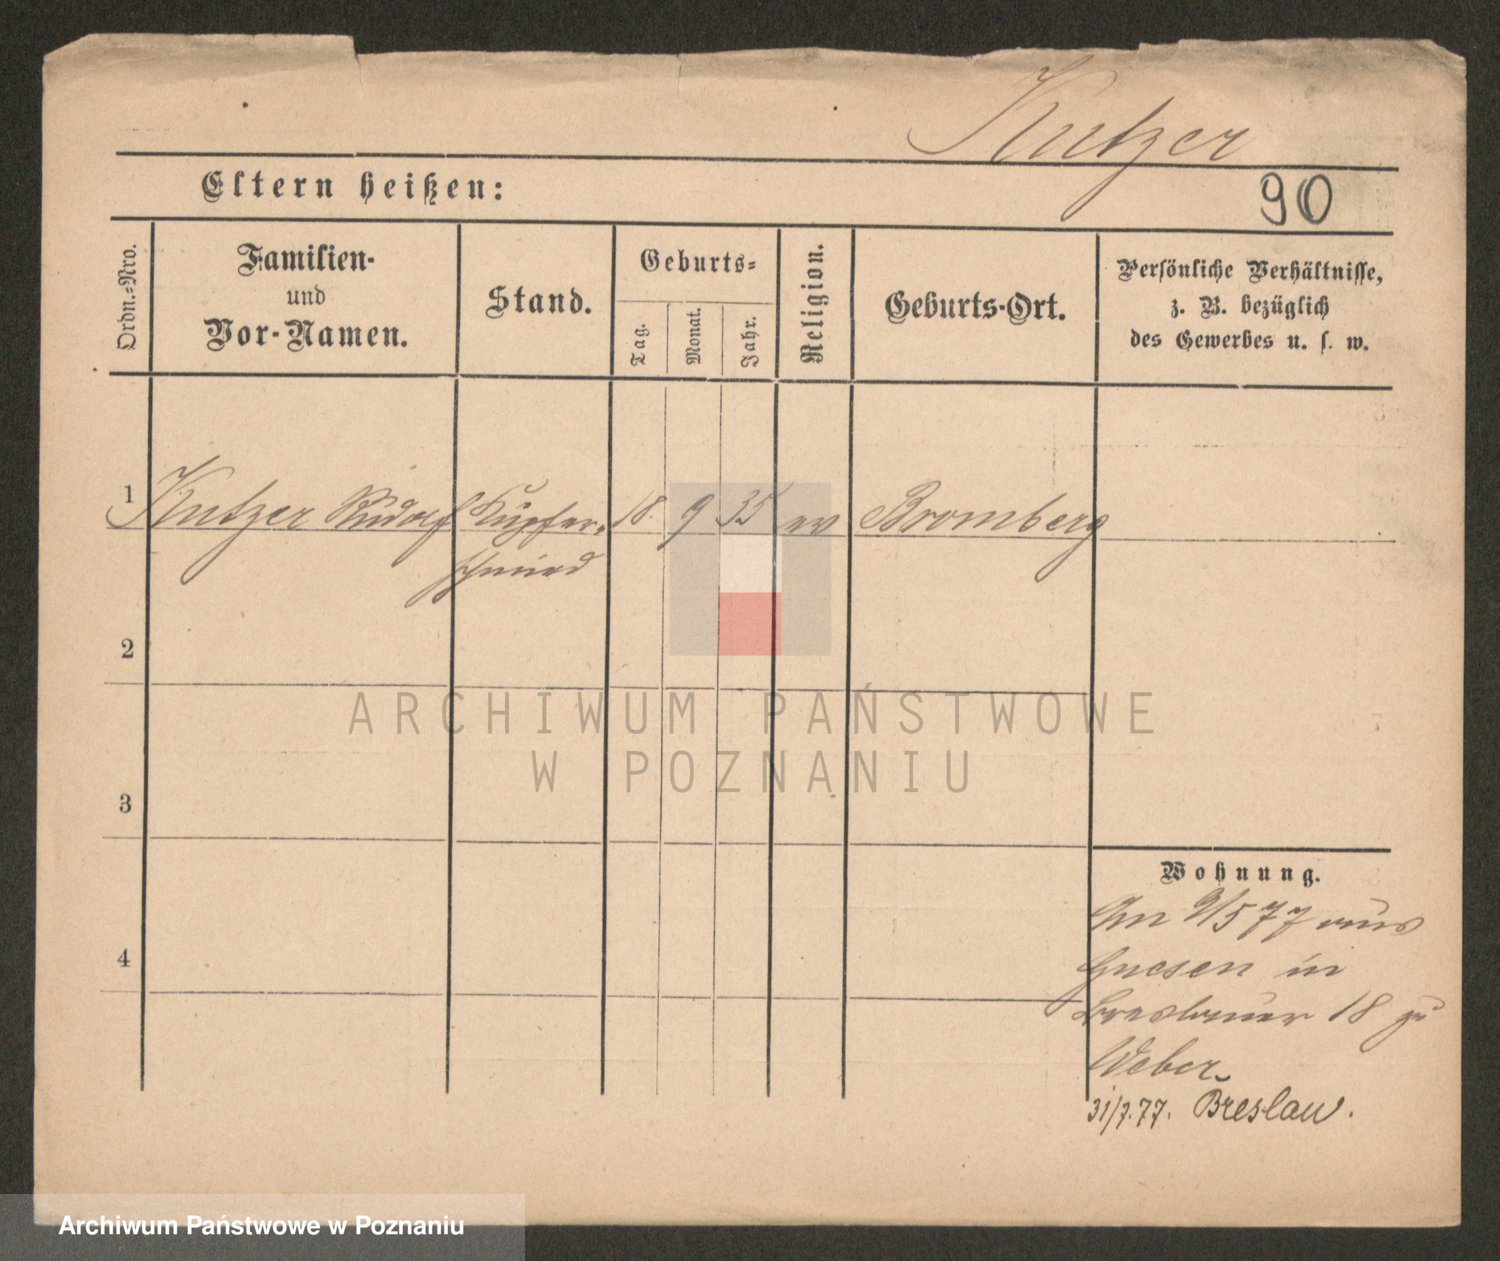 Kutzer
Eltern heißen:
90
Ordn.-Nro.
Familien-
und
Vor-Namen.
Stand.
Geburts-
Tag.
Monat.
Jahr.
Religion.
Geburts-Ort.
Persönliche Verhältnisse,
z. B. bezüglich
des Gewerbes u. s. w.
1 Kutzer Rudolf Kupfer- 18. 9 35 ev Bromberg
schmied
2
ARCHIWUM PAŃSTWOWE
W POZNANIU
3
Wohnung.
9/5 77 aus
4
Gnesen in
Breslauer 18 zu
Weber.
31/7.77. Breslau.
Archiwum Państwowe w Poznaniu